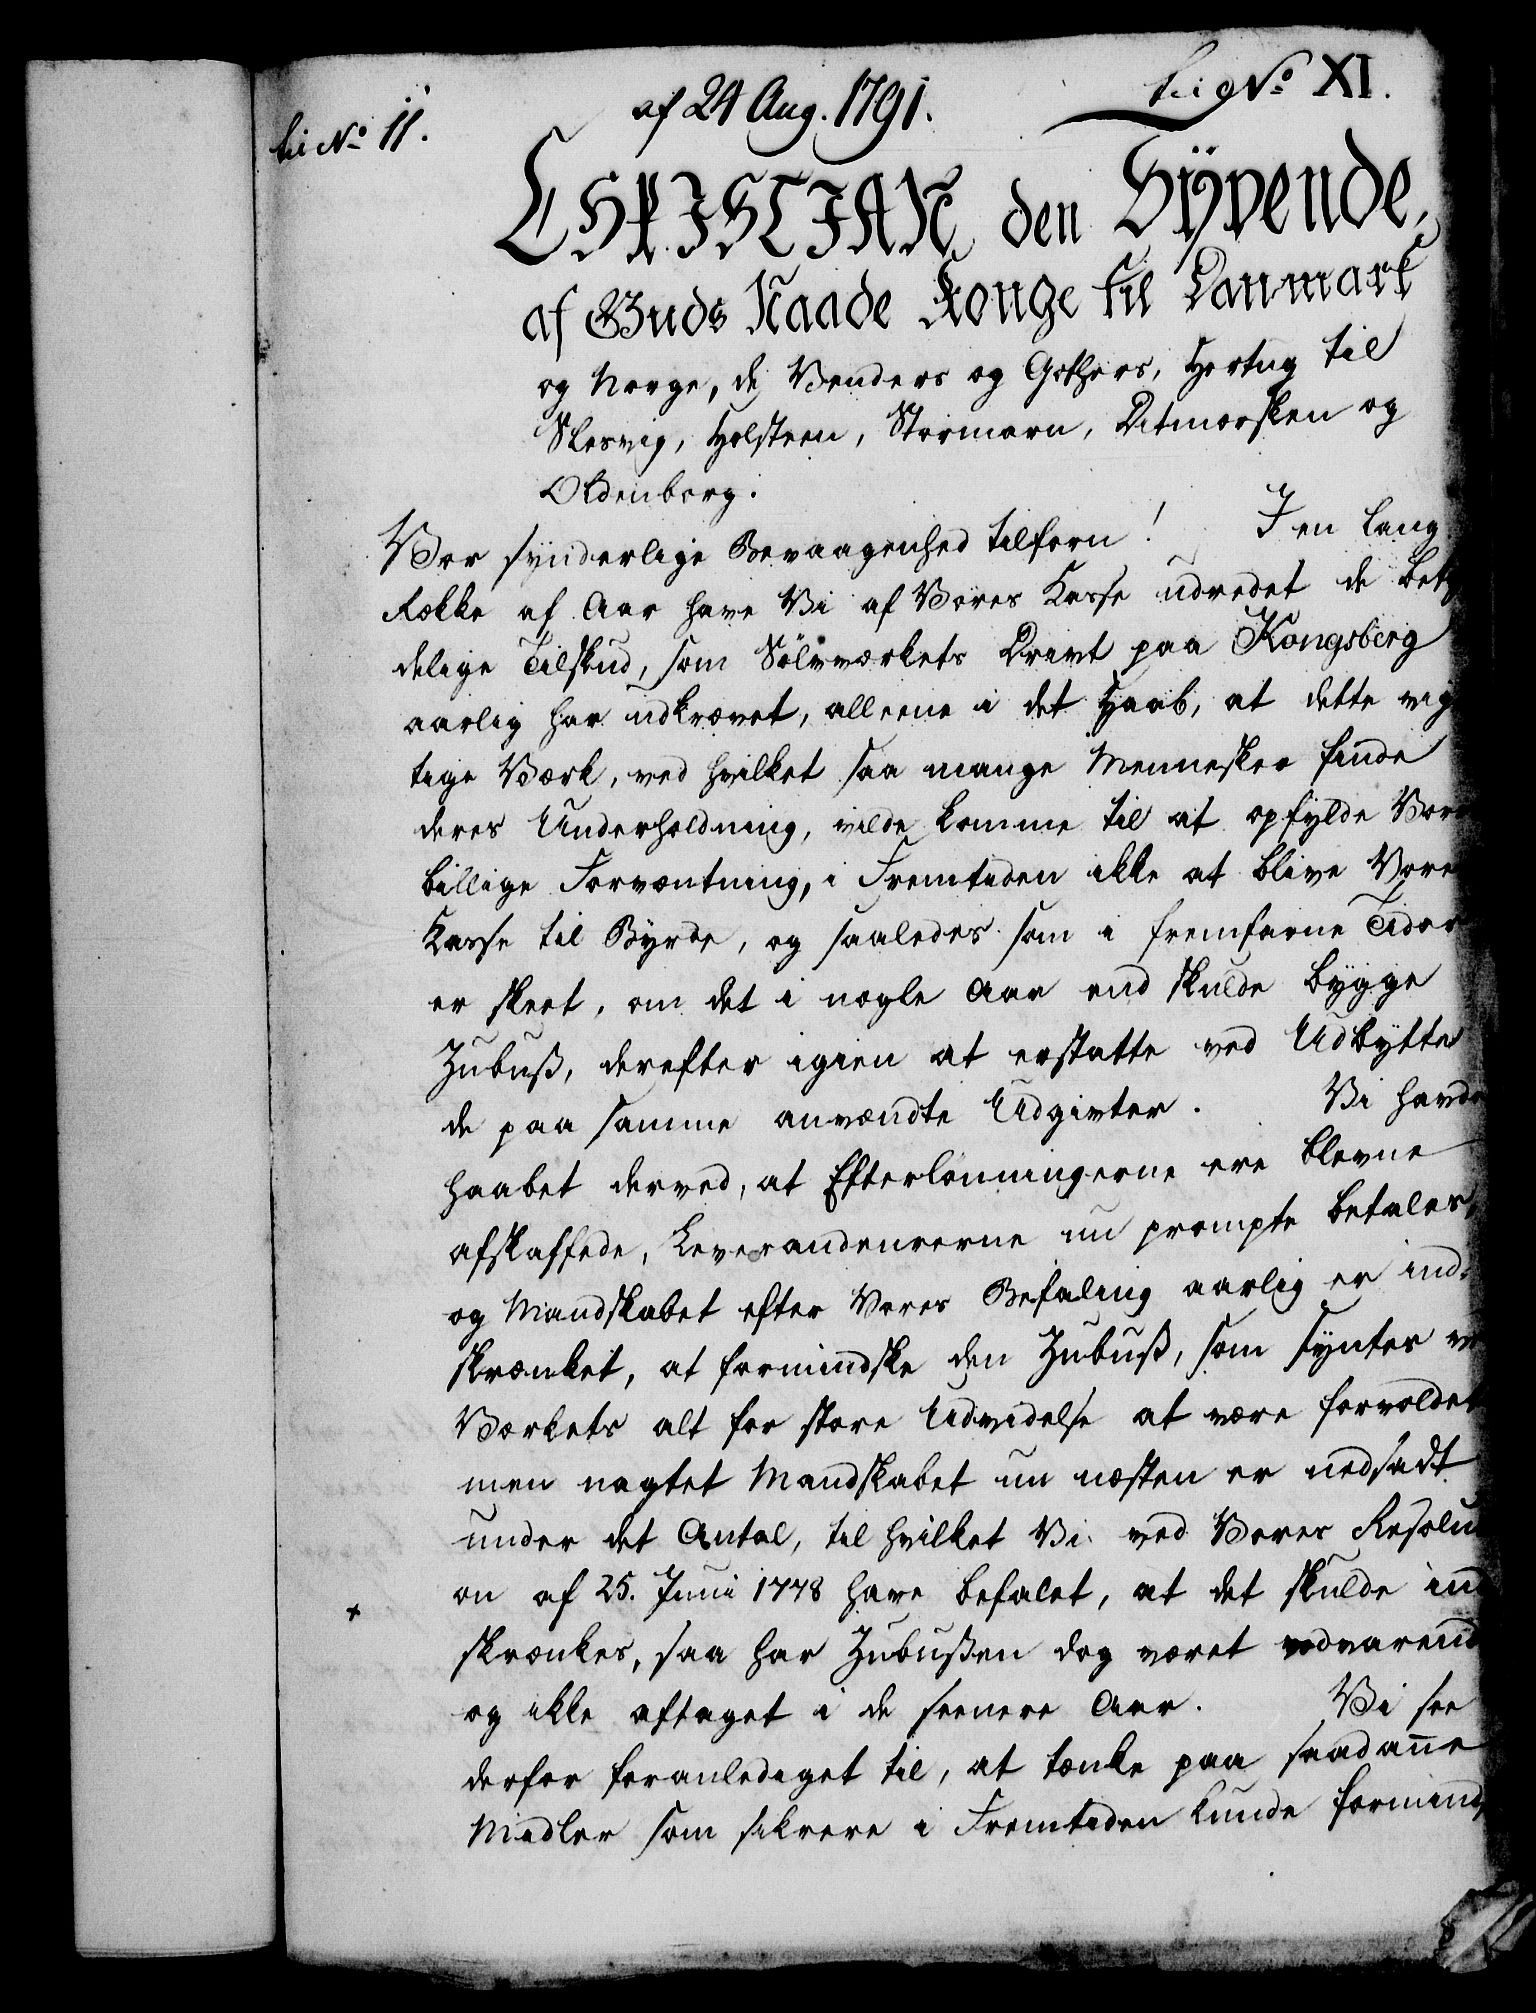 til No XI.
af 24 Aug. 1791.
til No 11.
CHRISTIAN den Syvende,
af Guds Naade Konge til Danmark
og Norge, de Venders og Gothers, Hertug til
Slesvig, Holsteen, Stormarn, Ditmarsken og
Oldenborg.
Vor synderlige Bevaagenhed tilforn! I en lang
Række af Aar have Vi af Vores Kasse udredet de bety
delige Tilskud, som Sölvværkets Drivt paa Kongsberg
aarlig har udkrævet, alleene i det Haab, at dette vig
tige Værk, ved hvilket saa mange Mennesker finde
deres Underholdning, vilde komme til at opfylde Vor
billige Forventning, i Fremtiden ikke at blive Vore
Kasse til Byrde, og saaledes som i fremfarne Tider
er skeet, om det i nogle Aar end skulde bygge
Zubuß, derefter igien at erstatte ved Udbytte
de paa samme anvændte Udgivter. Vi havde
haabet derved, at Efterlönningerne ere blevne
afskaffede, Leverandeurerne nu prompte betales,
og Mandskabet efter Vores Befaling aarlig er ind-
skrænket, at formindske den Zubuß, som syntes ve
Værkets alt for store Udvidelse at være forvoldet
men uagtet Mandskabet nu næsten er nedsadt
under det Antal, til hvilket Vi ved Vores Resolu
on af 25. Juni 1778 have befalet, at det skulde ind
skrænkes, saa har Zubußen dog været vedvarend
og ikke aftaget i de seenere Aar. Vi see
derfor foranlediget til, at tænke paa saadanne
Midler som sikrere i Fremtiden kunde formind